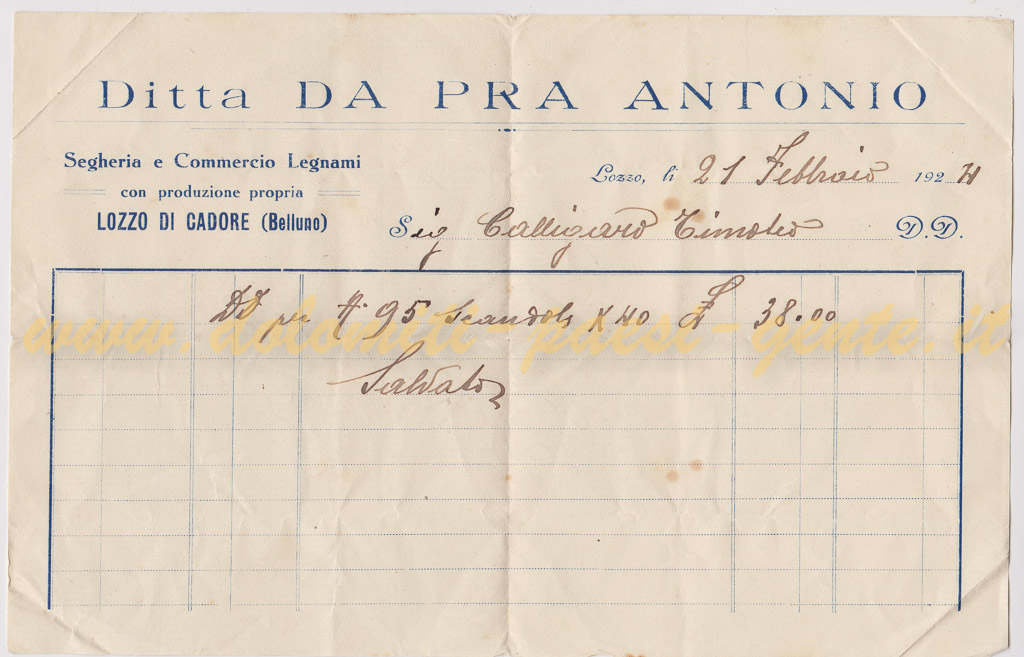 Ditta DA PRA ANTONIO
Segheria e Commercio Legnami
con produzione propria
LOZZO DI CADORE (Belluno)
Lozzo, li 21 Febbraio 1924
Sig Calligaro Timoteo D.D.
DD per N° 95 scandole x 40 £ 38.00
Saldato
www.dolomiti-paesi-gente.it